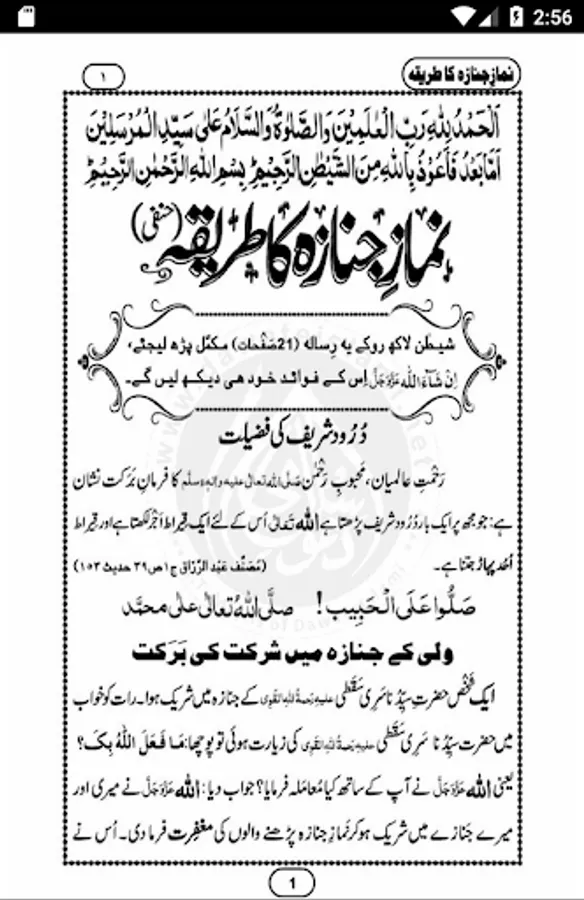 2:56
نمازِ جنازہ کا طریقہ
۱
اَلْحَمْدُ لِلّٰهِ رَبِّ الْعٰلَمِیْنَ وَالصَّلٰوةُ وَالسَّلَامُ عَلٰی سَیِّدِ الْمُرْسَلِیْنَ
اَمَّا بَعْدُ فَاَعُوْذُ بِاللّٰهِ مِنَ الشَّیْطٰنِ الرَّجِیْمِ ؕ بِسْمِ اللّٰهِ الرَّحْمٰنِ الرَّحِیْمِ ؕ
نمازِ جنازہ کا طریقہ (حنفی)
شیطٰن لاکھ روکے یہ رِسالہ (21 صَفْحات) مکمَّل پڑھ لیجئے،
اِنْ شَآءَ اللّٰه عَزَّوَجَلَّ اِس کے فوائد خود ھی دیکھ لیں گے۔
دُرُود شریف کی فضیلت
رَحْمتِ عالمیان، مَحبوبِ رَحْمٰن صَلَّی اللہ تعالٰی علیہ واٰلہٖ وسلَّم کا فرمانِ بَرَکت نشان
ہے: جو مجھ پر ایک بار دُرُود شریف پڑھتا ہے اللّٰہ تَعَالٰی اُس کے لئے ایک قِیراط اَجْر لکھتا ہے اور قِیراط
اُحُد پہاڑ جتنا ہے۔ (مُصَنَّف عَبْدُ الرَّزّاق ج ۱ ص ۳۹ حدیث ۱۵۳)
صَلُّوا عَلَی الْحَبِیْب! صلَّی اللّٰهُ تعالٰی علٰی محمَّد
ولی کے جنازہ میں شرکت کی بَرَکت
ایک شَخْص حضرتِ سیِّدُنا سَری سَقَطی علیہ رَحمۃُ اللہِ القوی کے جنازہ میں شریک ہوا۔ رات کو خواب
میں حضرت سیِّدُنا سَری سَقَطی علیہ رَحمۃُ اللہِ القوی کی زیارت ہوئی تو پوچھا: مَا فَعَلَ اللّٰهُ بِکَ؟
یعنی اللّٰه عَزَّوَجَلَّ نے آپ کے ساتھ کیا مُعامَلہ فرمایا؟ جواب دیا: اللّٰه عَزَّوَجَلَّ نے میری اور
میرے جنازے میں شریک ہو کر نَمازِ جنازہ پڑھنے والوں کی مغفِرت فرما دی۔ اُس نے
1